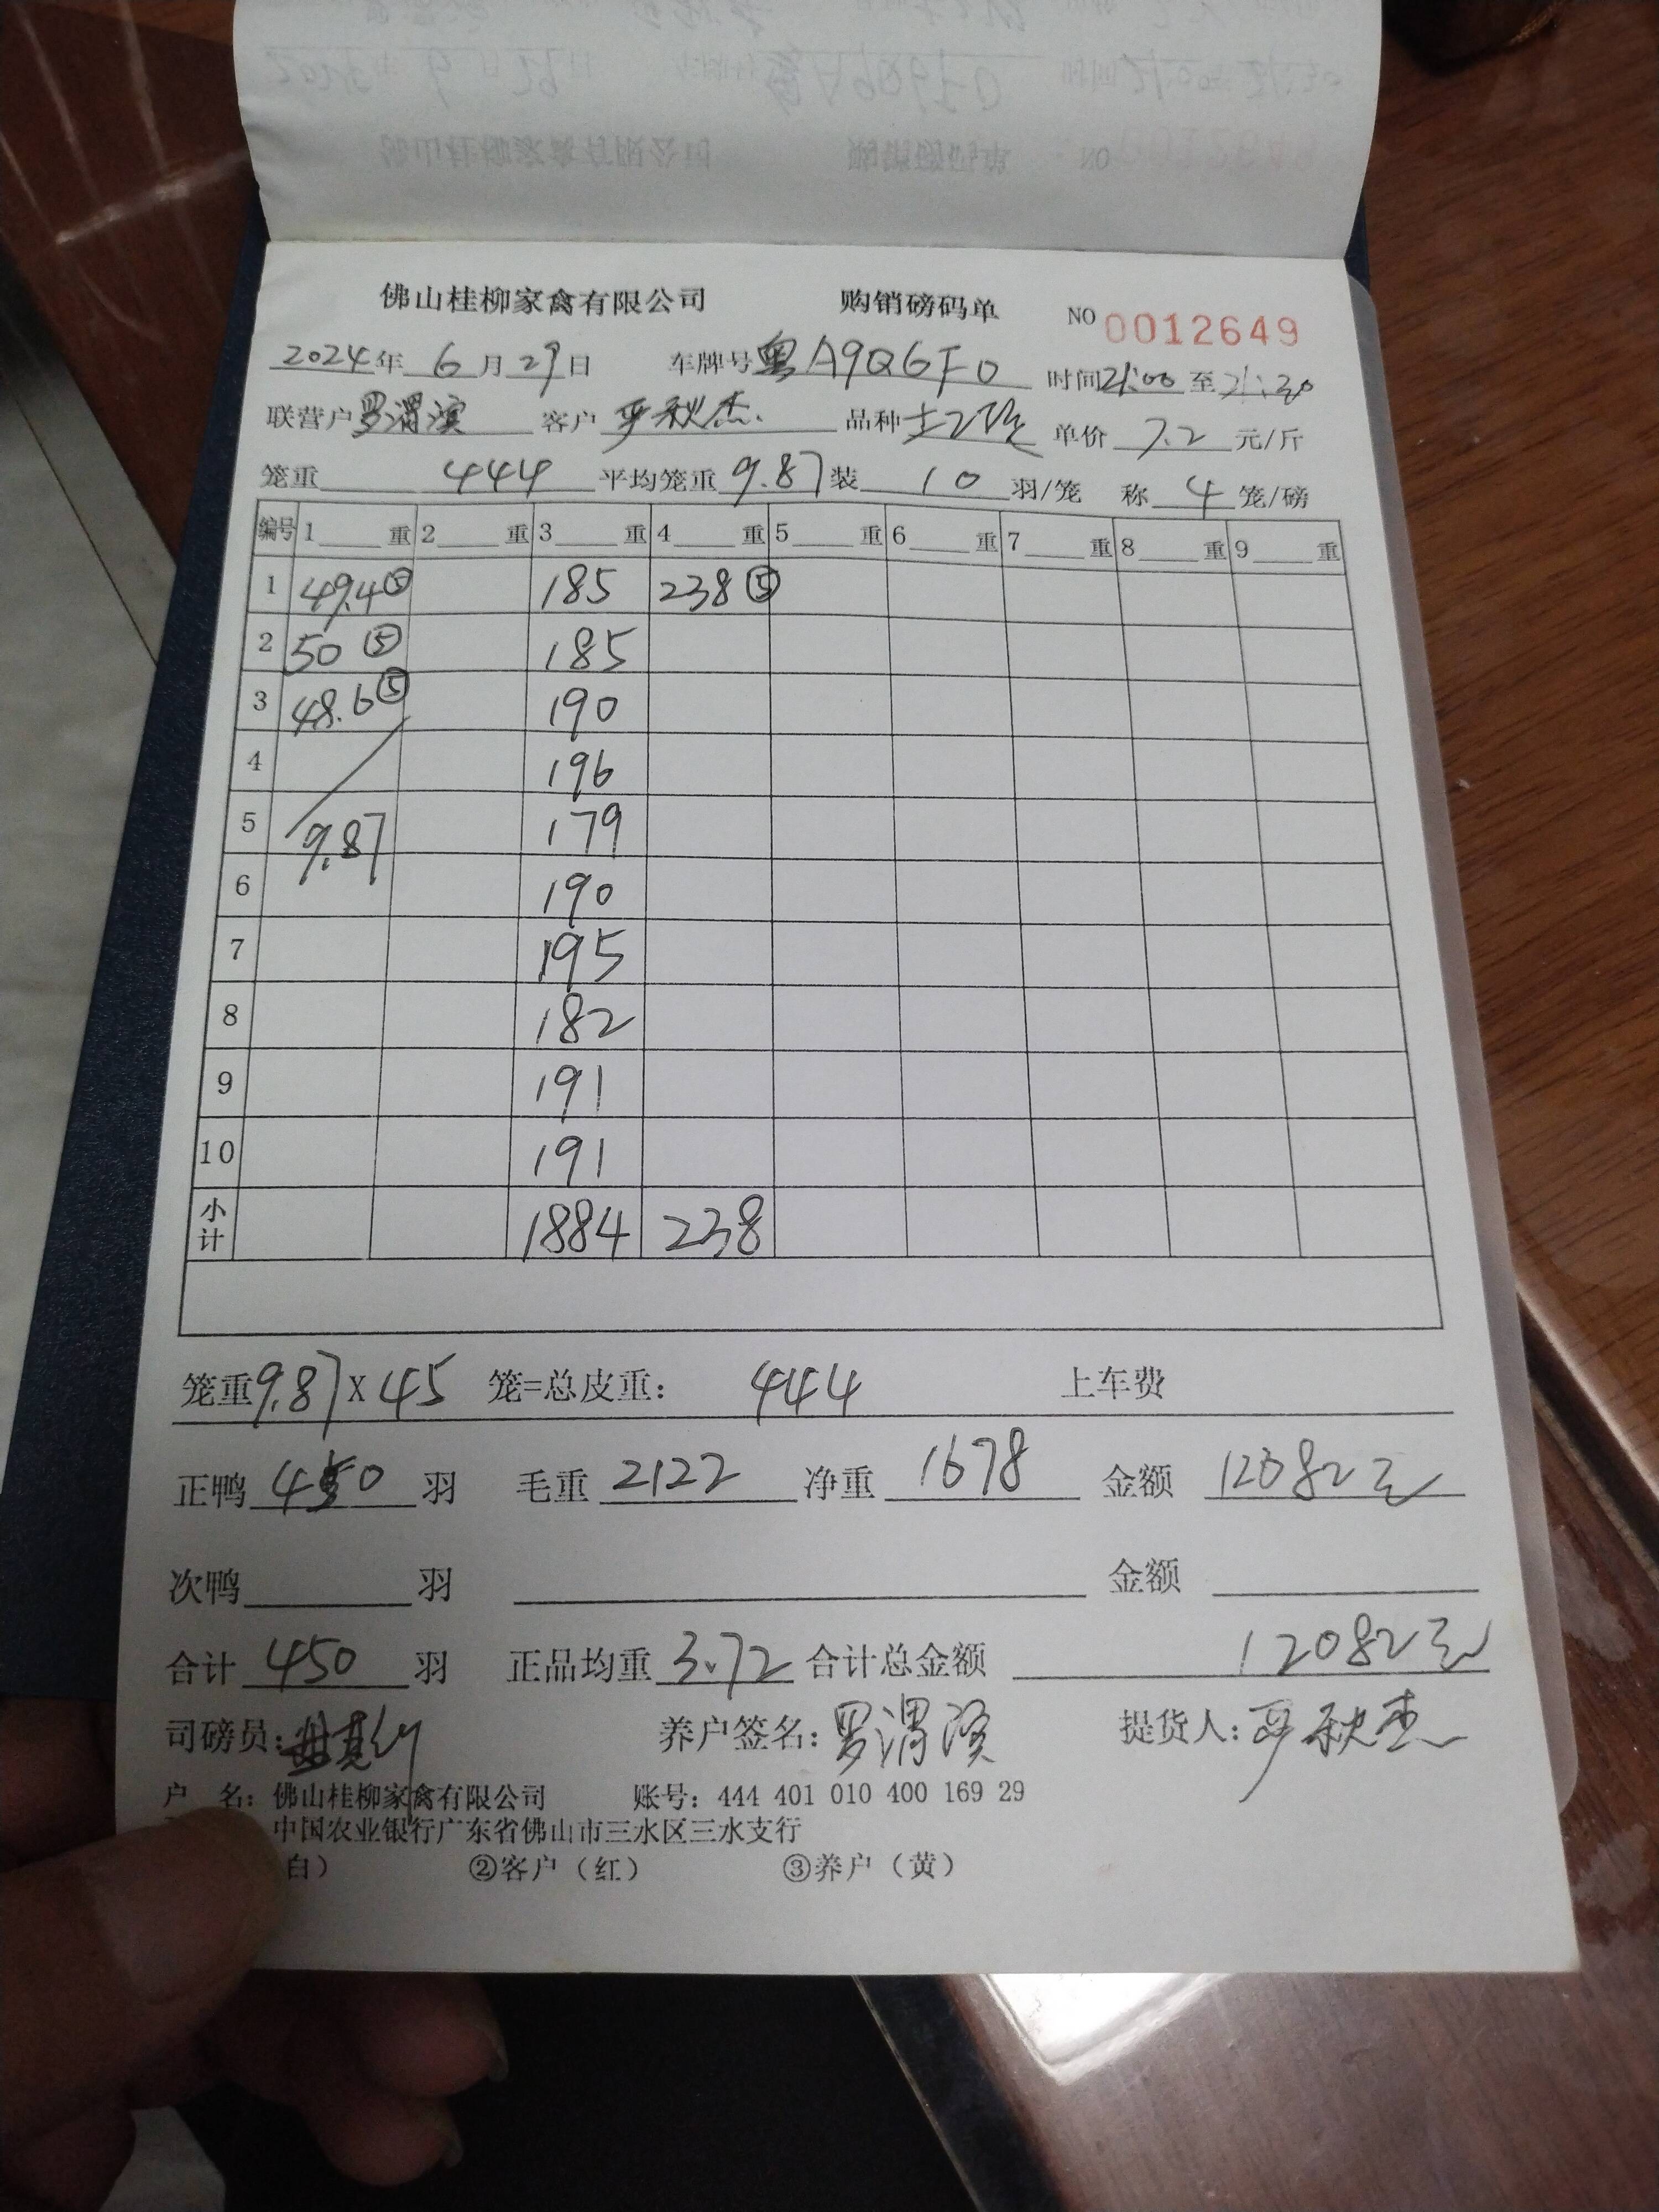 佛山桂柳家禽有限公司 购销磅码单 NO 0012649
2024年 6月29日 车牌号 粤A9Q6F0 时间21:00至21:30
联营户 罗渭滨 客户 严秋杰 品种 单价 7.2 元/斤
笼重 444 平均笼重 9.87 装 10 羽/笼 称 4 笼/磅
编号 1 重 2 重 3 重 4 重 5 重 6 重 7 重 8 重 9 重
1 49.4⑤ 185 238⑤
2 50⑤ 185
3 48.6⑤ 190
4 196
5 9.87 179
6 190
7 195
8 182
9 191
10 191
小计 1884 238
笼重9.87X45 笼=总皮重: 444 上车费
正鸭 450 羽 毛重 2122 净重 1678 金额 12082元
次鸭 羽 金额
合计 450 羽 正品均重 3.72 合计总金额 12082元
司磅员: 养户签名:罗渭滨 提货人:严秋杰
户 名: 佛山桂柳家禽有限公司 账号: 444 401 010 400 169 29
中国农业银行广东省佛山市三水区三水支行
白) ②客户(红) ③养户(黄)